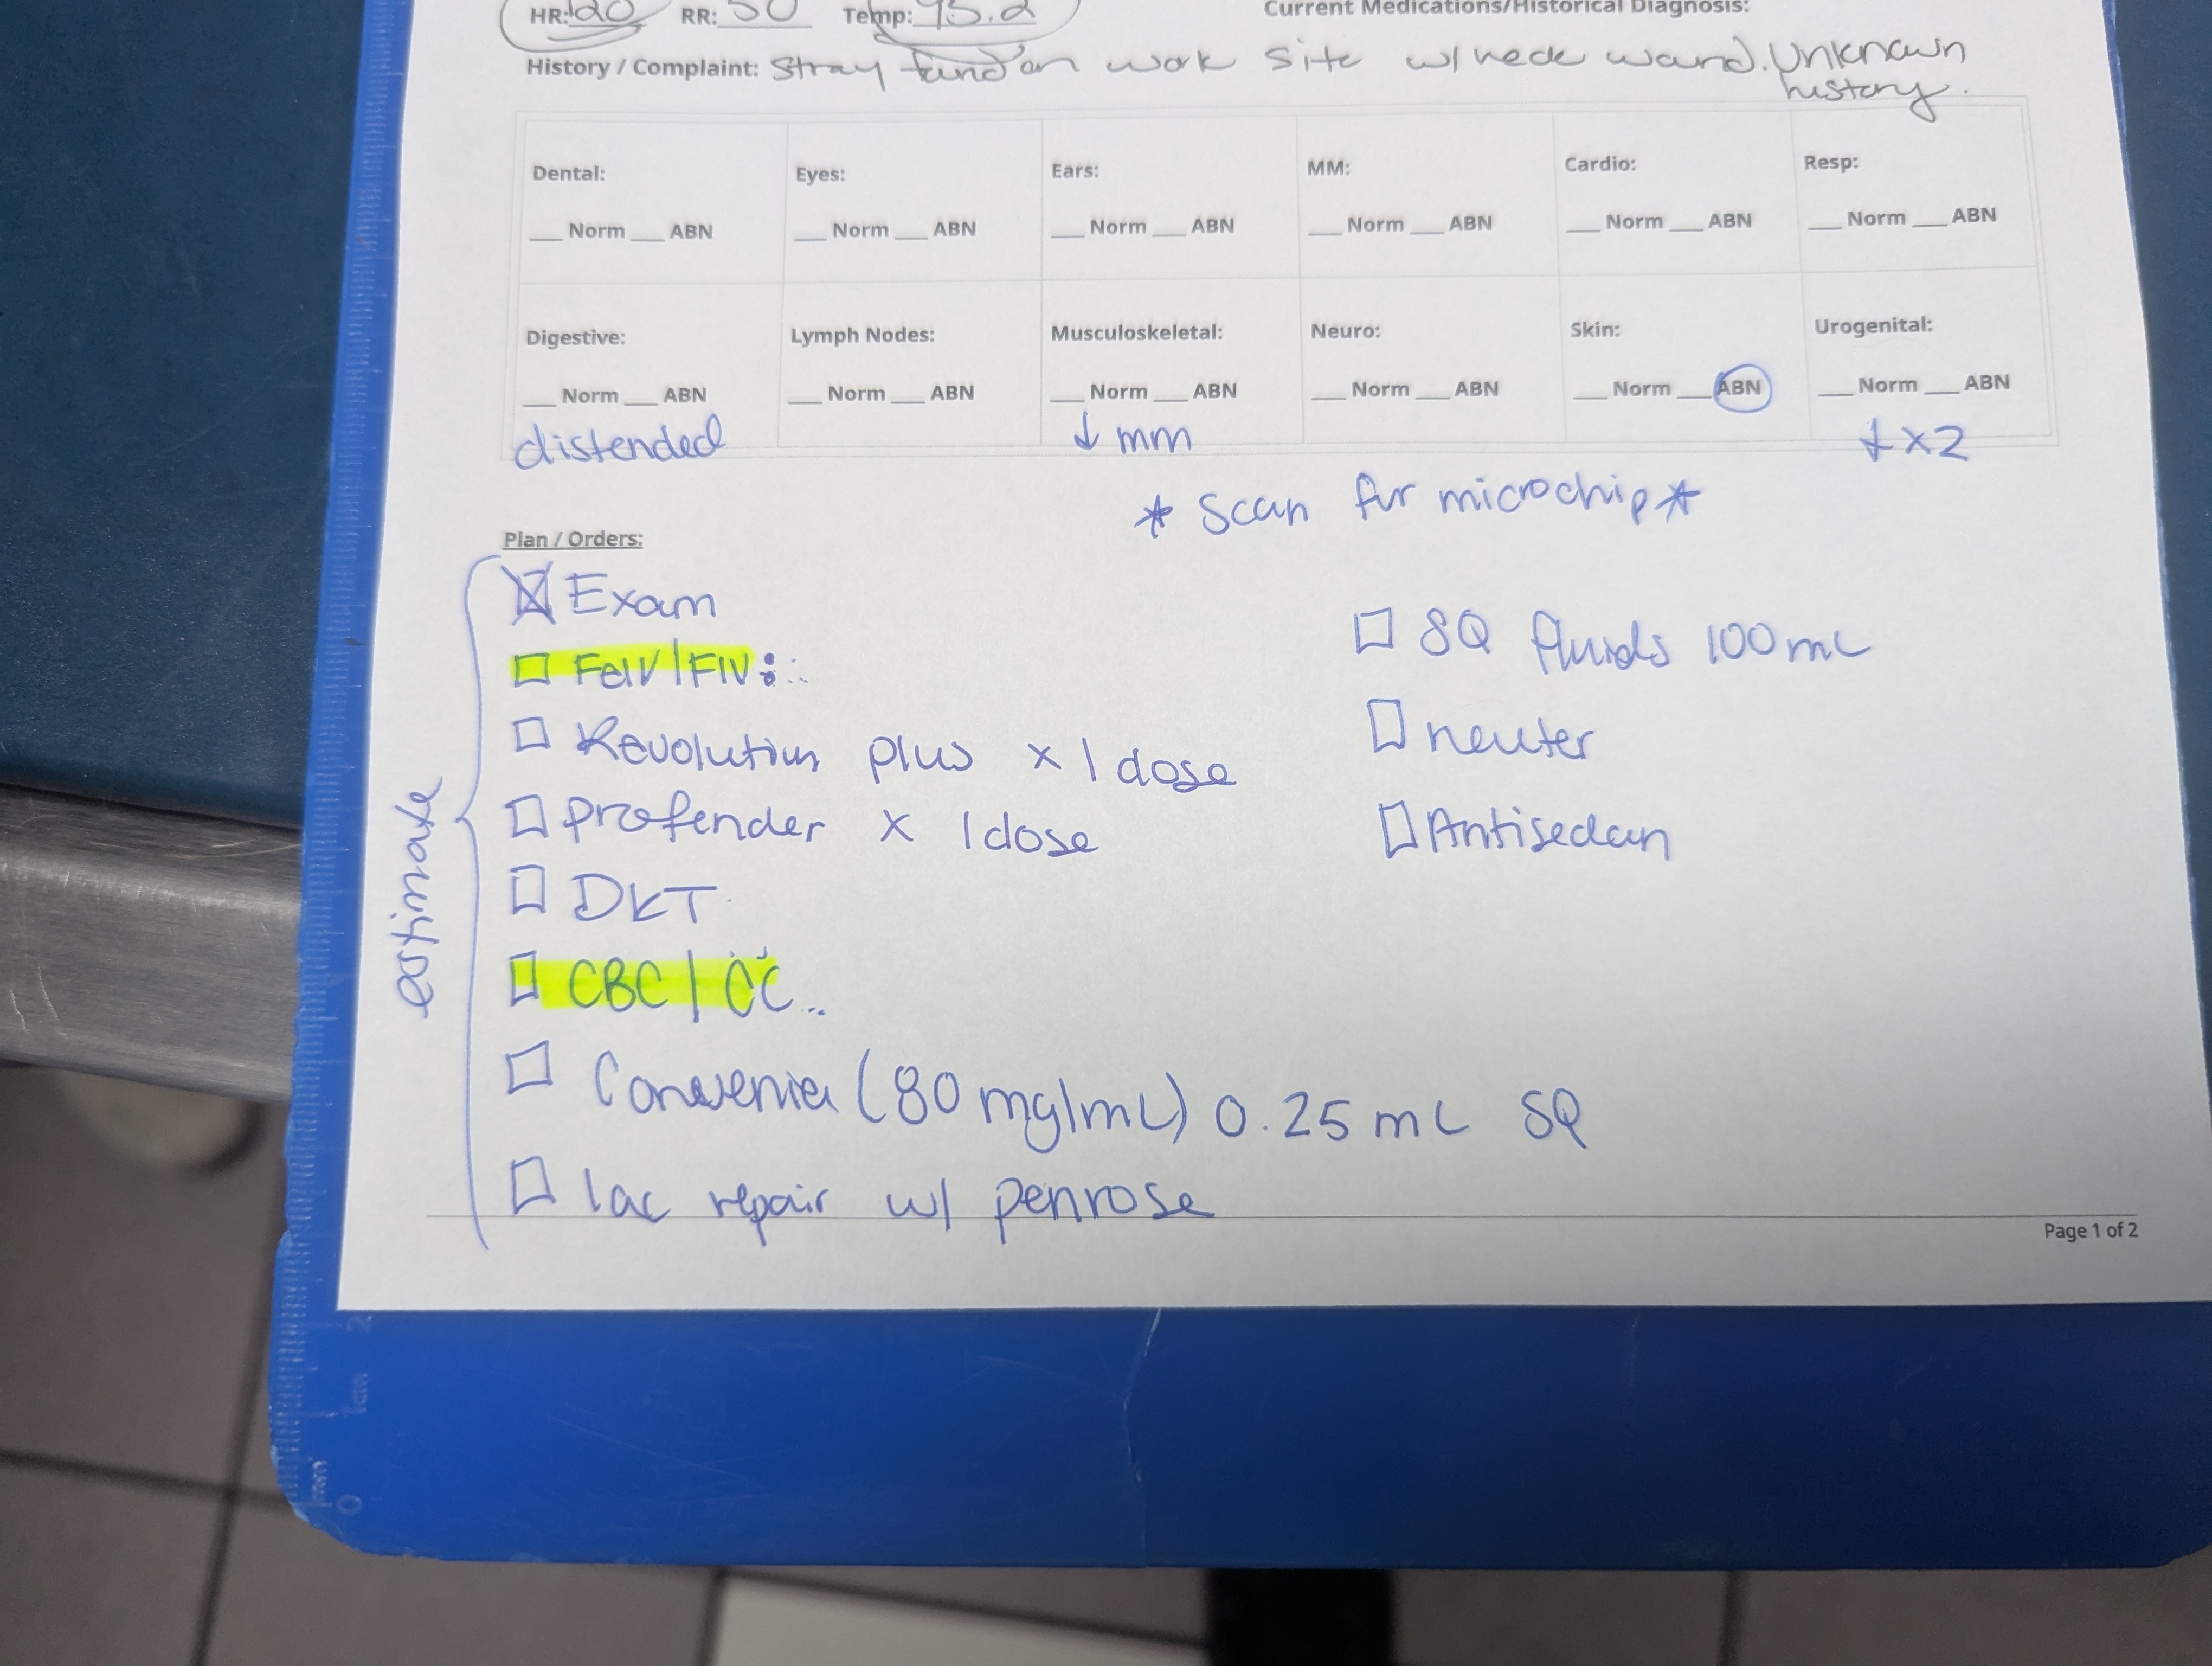 HR: 120 RR: 30 Temp: 93.2 Current Medications/Historical Diagnosis:
History / Complaint: Stray found on work site w/ neck wound. Unknown
history.
Dental: Eyes: Ears: MM: Cardio: Resp:
__ Norm __ ABN __ Norm __ ABN __ Norm __ ABN __ Norm __ ABN __ Norm __ ABN __ Norm __ ABN
Digestive: Lymph Nodes: Musculoskeletal: Neuro: Skin: Urogenital:
__ Norm __ ABN __ Norm __ ABN __ Norm __ ABN __ Norm __ ABN __ Norm __ ABN __ Norm __ ABN
distended ↓ mm ↓ x2
* Scan for microchip *
Plan / Orders:
estimate
☒ Exam
☐ FelV/FIV:
☐ Revolution plus x 1 dose
☐ profender x 1 dose
☐ DKT
☐ CBC / CC
☐ Convenia (80 mg/mL) 0.25 mL SQ
☐ lac repair w/ penrose
☐ SQ fluids 100 mL
☐ neuter
☐ Antisedan
Page 1 of 2
2
1cm
mm
0